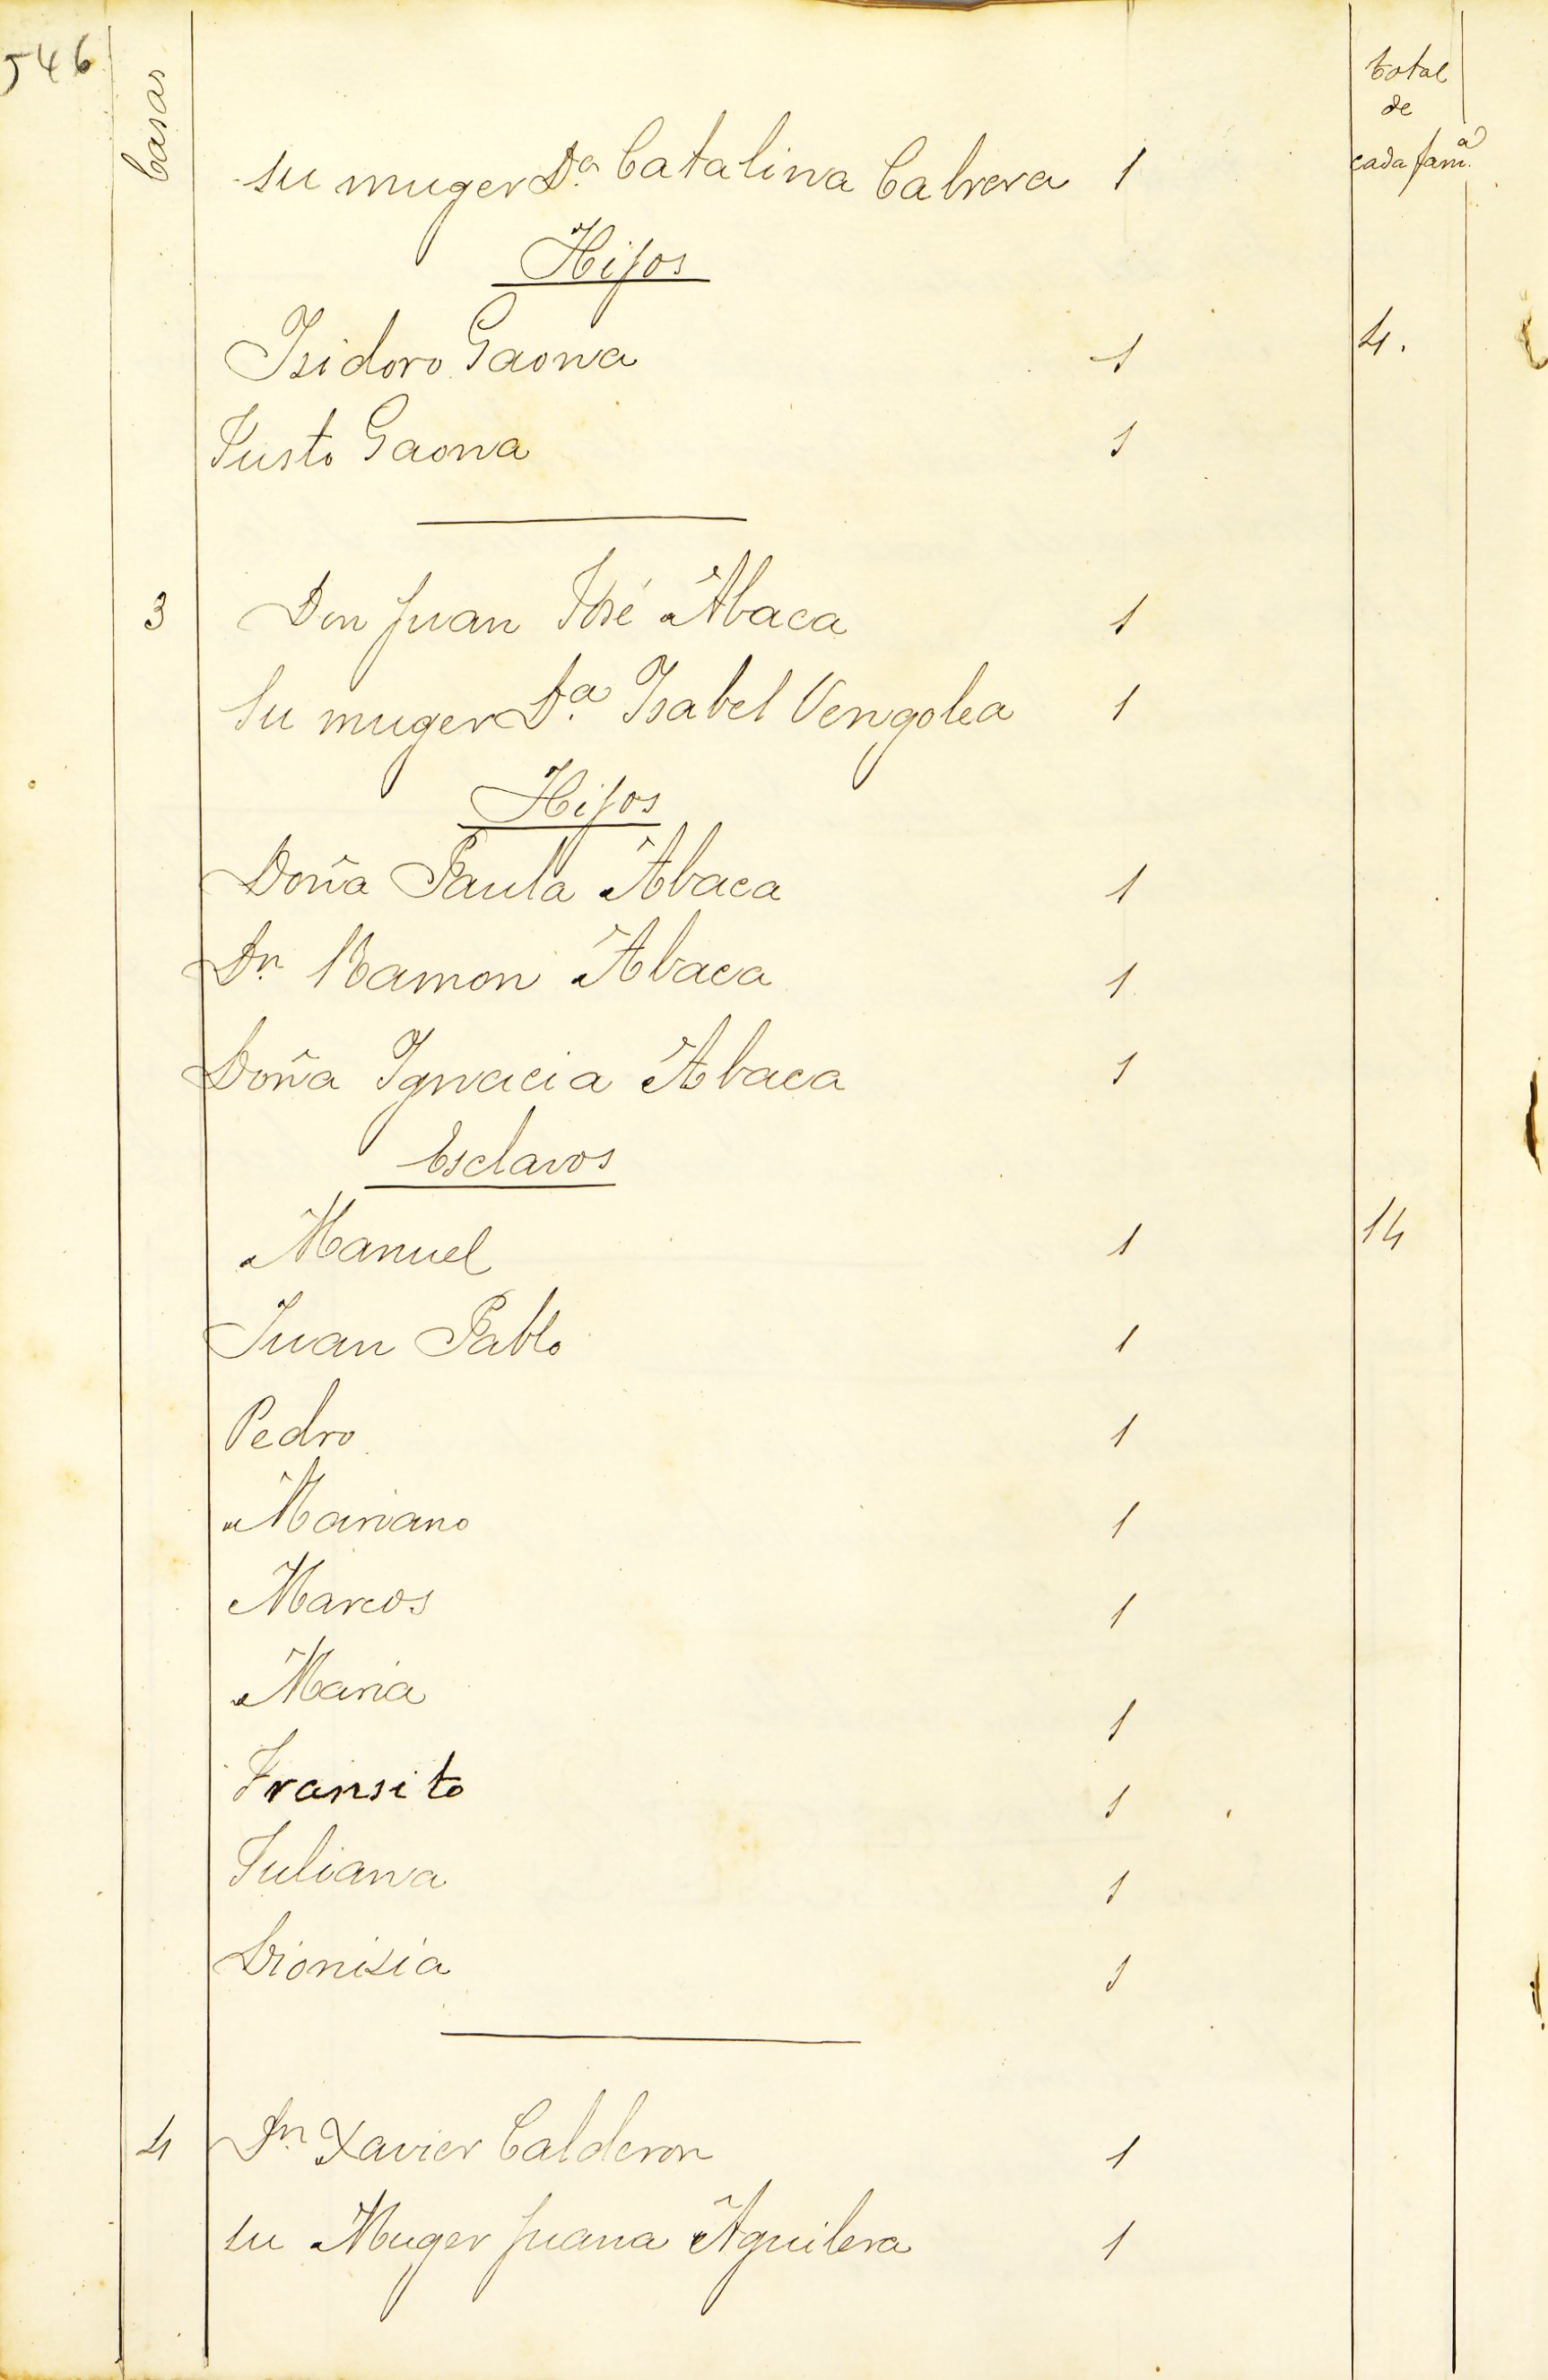 546
Casas
total
de
cada fam.ª
su muger D.ª Catalina Cabrera 1
Hijos
Isidoro Gaona 1 4.
Justo Gaona 1
3 Don Juan José Abaca 1
Su muger D.ª Isabel Vengolea 1
Hijos
Doña Paula Abaca 1
Dn. Ramon Abaca 1
Doña Ignacia Abaca 1
Esclavos
Manuel 1 14
Juan Pablo 1
Pedro 1
Mariano 1
Marcos 1
Maria 1
Transito 1
Juliana 1
Dionisia 1
4 Dn. Xavier Calderon 1
su Muger Juana Aguilera 1